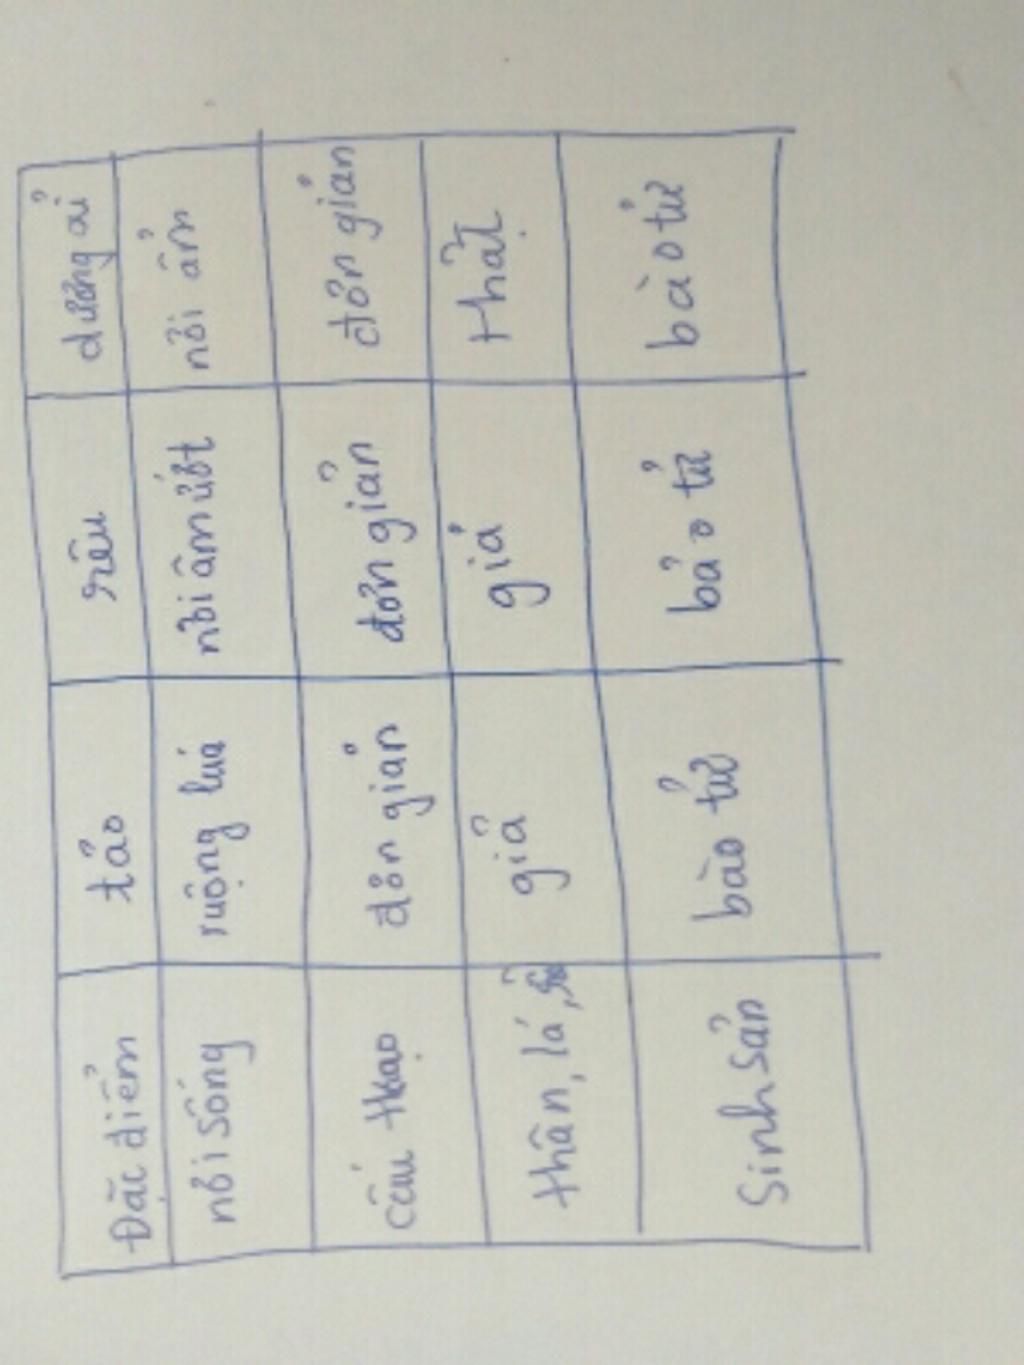 Đặc điểm tảo rêu dương ải
nơi sống ruộng lúa nơi âm ướt nơi âm
cấu tạo đơn giản đơn giản đơn giản
thân, lá, rễ giả giả thật
Sinh sản bào tử bảo tử bào tử